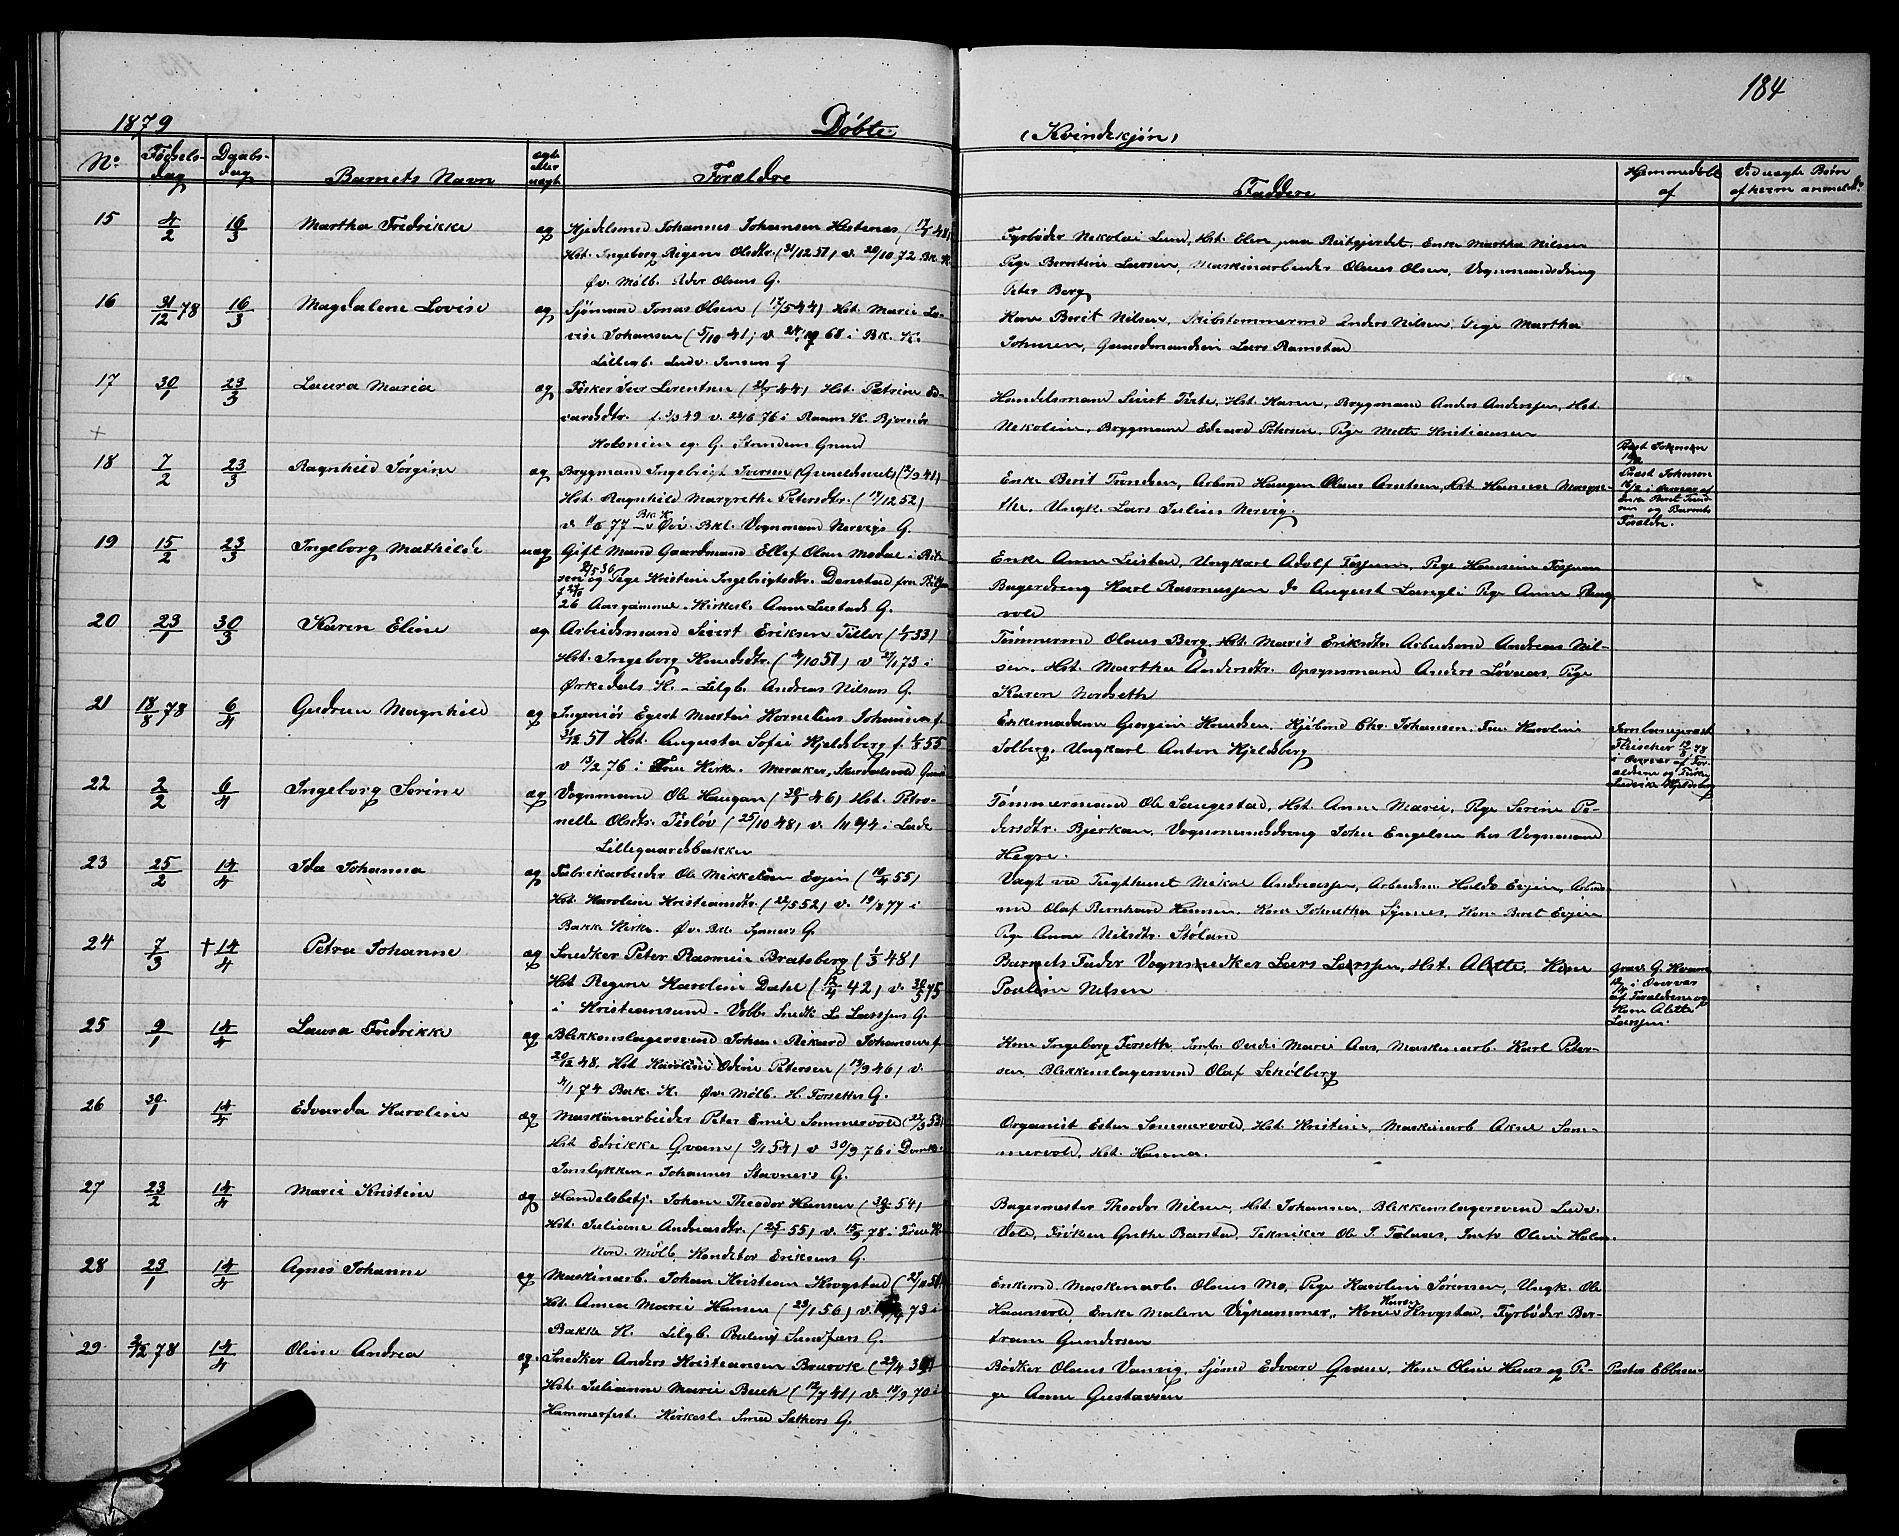 184
1879 Døbte (Kvindekjøn)
No. Fødsels-dag Daabs-dag Barnets Navn ægte eller uægte Forældre Faddere Hjemmedøbt af Ved uægte Børn af hvem anmeldt
15 4/2 16/3 Martha Fredrikke æg Kjedelsmed Johannes Johansen Hestenæs
Hst. Ingeborg Regine Olsdtr. (31/12 51) v. 20/10 72 Bk. K.
Øv. Mölb. Peder Olsens G.
Fyrbøder Nikolai Lund, Hst. Elen paa Reitgjerdet, Enke Martha Nilsen
Pige Berntine Larsen, Maskinarbeider Olaus Olsen, Vognmandsdreng
Peter Berg
16 31/12 78 16/3 Magdalene Lovise æg Sjömand Jonas Olsen (17/5 44) Hst. Marie Lo-
vise Johansen (5/10 41) v. 68 i Bk. K.
Lillegb. Ludv. Jensens G
Kone Berit Nilsen, Skibstømmermd Anders Nilsen, Pige Martha
Johnsen, Gaardmandssön Lars Ramstad
17 30/1 23/3 Laura Maria æg Fisker Iver Lorentsen Hst. Petrine Ed-
vardsdtr. 49 v. 22/6 76 i Raum K.
Kolonien eg. G. Strindens Grund
Handelsmand Sivert Tvete, Hst. Karen, Brygmand Anders Anderssen, Hst.
Nikoline, Brygmand Edvard Petersen, Pige Mette Kristiansen
18 7/2 23/3 Ragnhild Jørgine æg Brygmand Ingebrigt Iversen (13/9 41)
Hst. Ragnhild Margrethe Petersdtr. (17/12 52)
v. 77 Bk. K. Øvr. Bkl. Vognmand Nervigs G.
Enke Berit Trondsen, Arbmd Haagen Olaus Arntsen, Hst. Hansine Margre-
the. Ungk. Lars Julius Nervig.
Præst Johnson
i Overvær af
Enke Berit Trond-
sen og Barnets
Forældre.
19 15/2 23/3 Ingeborg Mathilde uæg Gift Mand Gaardmand Ellef Olsen Modal i
og Pige Kristine Ingebrigtsdtr.
26 Aar gammel. Kirkesl. Anne Leistads G.
Enke Anne Leistad, Ungkarl Adolf Fosjum, Pige Hansine Fosjum
Bagerdreng Karl Rasmussen do August Langli Pige Anne
vold
20 23/1 30/3 Karen Eline æg Arbeidsmand Sivert Eriksen Tiller
Hst. Ingeborg Knudsdtr. v. 27/1 73 i
Ørkedals K. Lilgb. Andreas Nilsens G.
Tømmermd Olaus Berg, Hst. Marit Eriksdtr. Arbeidsmd Andreas Nil-
sen, Hst. Martha Andersdtr. Opsynsmand Anders Løvaas, Pige
Karen Nordseth
21 18/8 78 6/4 Gudrun Magnhild æg Ingeniör Egert Martin Kornelius Johansen f.
51 Hst. Augusta Sofie Kjeldsberg f. 55
v. 13/2 76 i Frue Kirke. Meraker,
Enkemadame Georgine Knudsen, Kjøbmd Chr. Johansen, Frue Karoline
Solberg, Ungkarl Anton Kjeldsberg
Fleischer
i Overvær af For-
ældrene og Frøken
Ludvike Kjeldsberg
22 2/2 6/4 Ingeborg Serine æg Vognmand Ole Haugan Hst. Petro-
nelle Olsdtr. Fisløv (25/10 48) v.
Lillegaardsbakken
Tømmermand Ole Saugestad, Hst. Anne Marie, Pige Serine Pe-
dersdtr. Bjerkan, Vognmandsdreng John Engelsen hos Vognmand
Hegre.
23 25/2 14/4 Ida Johanna æg Fabrikarbeider Ole Mikkelsen Evjen
Hst. Karoline Kristiansdtr. (22/5 52) v. 77 i
Bakk Kirke. Øv. Bk. Synnes's G.
Vagt ved Tugthuset Mikal Andreassen, Arbeidsm. Haldo Evjen, Arbeids-
md Olaf Bernhard Hansen, Kone Johnetha Synnes, Kone Beret Evjen
Pige Anne Nilsdtr. Stöland
24 7/3 †14/4 Petra Johanne æg Snedker Peter Rasmus Bratsberg (1/3 48)
Hst. Regine Karoline Dahl (12/4 42) v. 30/5 75
i Kristiansund. Vobb. Snedk. L. Larssens G.
Barnets Fader Vognsnedker Lars Larssen, Hst. Alette, Kone
Pouline Nilsen
Grav. G. Kvam
i Overvær
af Forældrene og
Kone Alette
Larssen.
25 9/1 14/4 Laura Fredrikke æg Blikkenslagersvend Johan Rikard Johansen f.
48. Hst. Karoline Odine Petersen (13/9 46) v.
4/1 74 Bak. K. Øv. Mölb. H. Forseths G.
Kone Ingeborg Forseth, Marie Aas, Maskinarb. Karl Peter-
sen, Blikkenslagersvend Olaf Schölberg
26 30/1 14/4 Edvarda Karoline æg Maskinarbeider Peter Emil Sommervold
Hst. Edrikke Qvam (9/1 54) v. 30/9 76 i Domk.
Ionslykken. Johannes Stavnes's G.
Organist Esten Sommervold, Hst. Kristine, Maskinarb Som-
mervold, Hst. Hanna.
27 23/2 14/4 Marie Kristine æg Handelsbetj. Johan Theodor Hansen
Hst. Juliane Andreasdtr. v. 78 i Frue K.
Nor. Mölb. Konditor Eriksens G.
Bagermester Theodor Nilsen, Hst. Johanna, Blikkenslagersvend Ludv.
Vold, Frøken Grethe Barstad, Tekniker Ole J. Følnes, Oline Holm.
28 23/1 14/4 Agnes Johanne æg Maskinarb. Johan Kristian Krogstad
Hst. Anna Marie Hansen (23/1 56) v. 73 i
Bakke K. Lilgb. Pouline Sundfærs G.
Enkemd. Maskinarb. Olaus Mo, Pige Karoline Sørensen, Ungk. Ole
Haansvold, Enke Malene Vigkammer, Kone Karen Krogstad, Fyrbøder Ber-
tram Gundersen
29 78 14/4 Oline Andrea æg. Snedker Anders Kristiansen Bruvok
Hst. Julianne Marie Buch (12/7 41) v. 70 i
Hammerfest. Kirkesl. Smed Sæthers G.
Bødker Olaus Vanvig, Sjømd Edvard Qvam, Kone Oline Huus og Pi-
ge Anne Gustavsen
Pastor Ebbesen